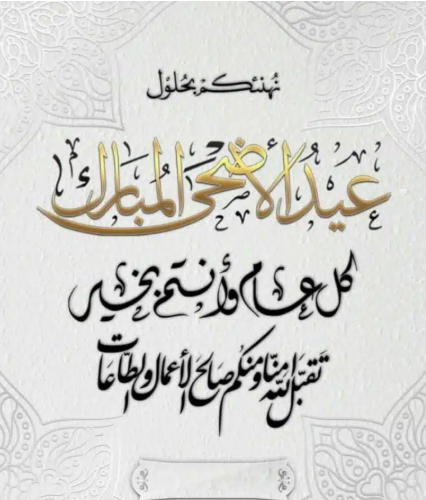 نهنئكم بحلول
عيد الأضحى المبارك
كل عام وأنتم بخير
تقبل الله منا ومنكم صالح الأعمال والطاعات